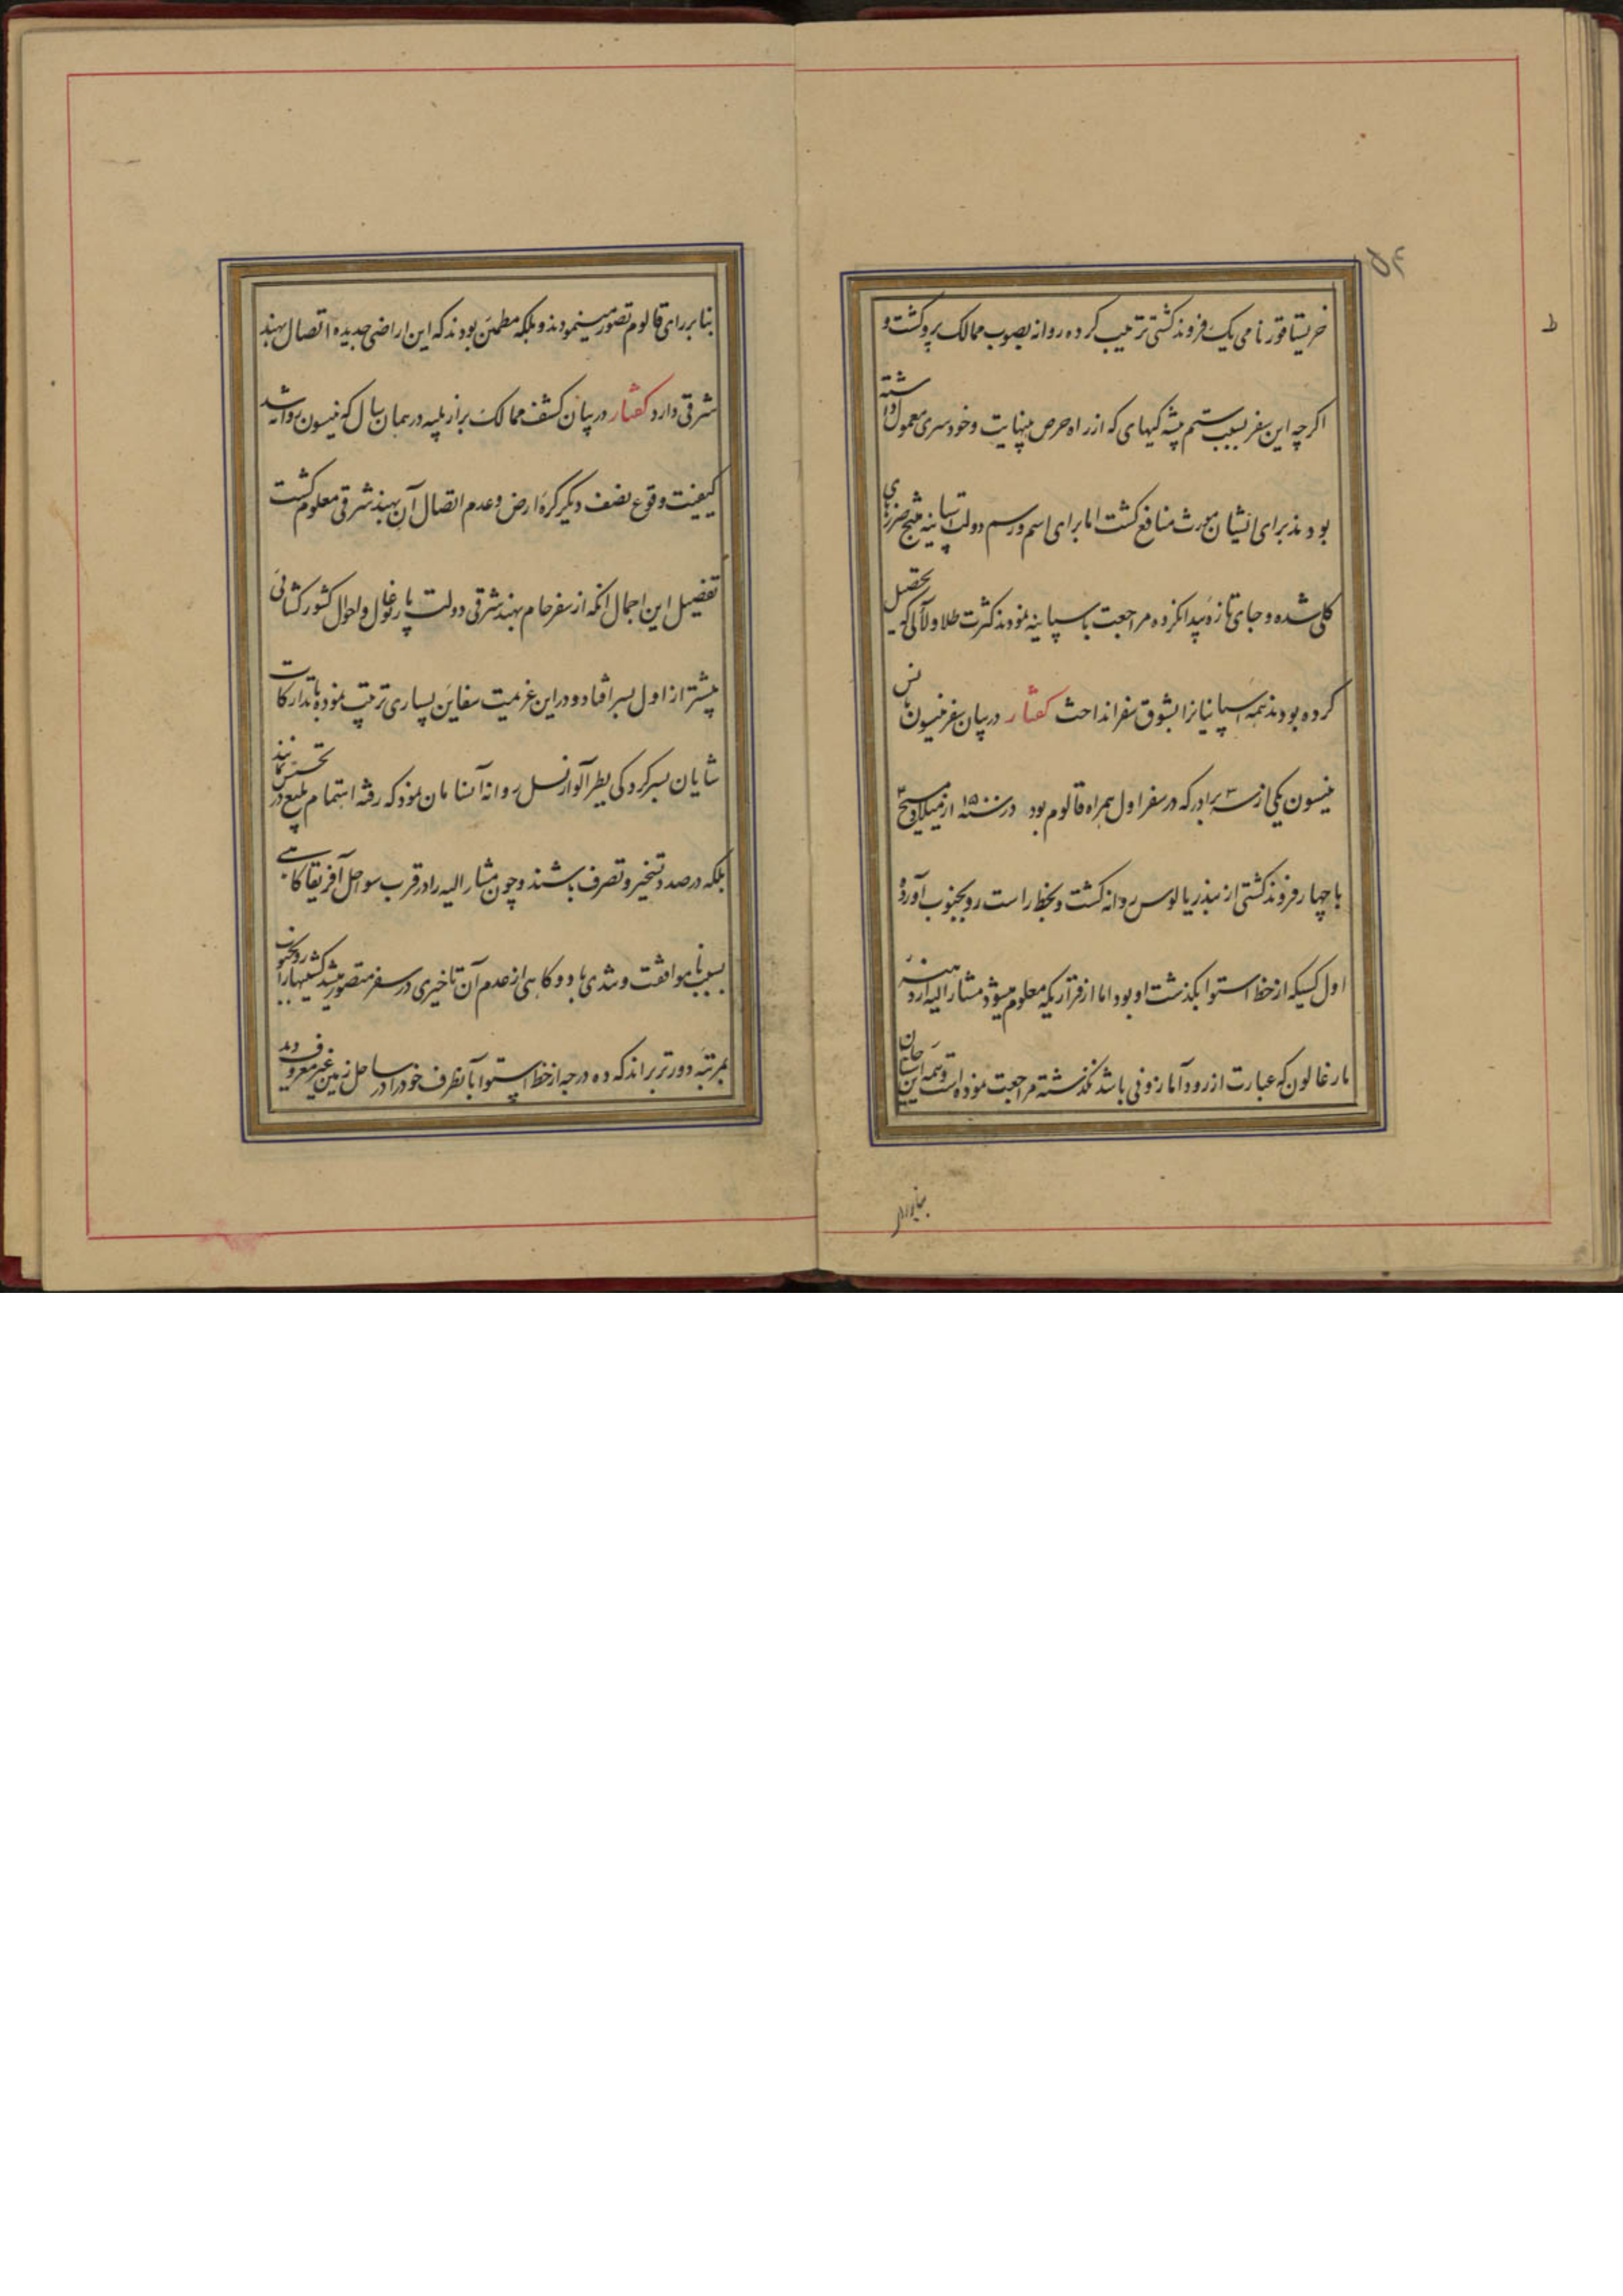 خریستاقور نامی یک فروند کشتی ترتیب کرده روانه بصوب ممالک پرو کشت و
اکرچه این سفر بسبب ستم پیشه کیهای که از راه حرص بینهایت و خودسری معمول داشته
بودند برای ایشان مورث منافع کشت اما برای اسم و رسم دولت اسپانیه منتج ضررهای
کلی شده و جای تازه پیدا نکرده مراجعت باسپانیه نمودند کثرت طلا و لآلی که تحصیل
کرده بودند همه اسپانیانرا بشوق سفر انداخت کفتار در بیان سفر نیسون یانس
نیسون یکی از سه برادر که در سفر اول همراه قالوم بود در سنه ۱۵۰۰ از میلاد مسیح
با چهار فروند کشتی از بندر پالوس روانه کشت و بخط راست رو بجنوب آورده
اول کسیکه از خط استوا بکذشت او بود اما از قراریکه معلوم میشود مشار الیه از رودهنر
مارغالون که عبارت از رود آمازونی باشد نکذشته مراجعت نموده است و همه این
بنابر رای
بنابر رای قالوم تصور مینمودند و بلکه مطمئن بودند که این اراضی جدیده اتصال بهند
شرقی دارد کفتار در بیان کشف ممالک برازیلیه در همان سال که نیسون روانه شد
کیفیت وقوع نصف دیکر کرۀ ارض و عدم اتصال آن بهند شرقی معلوم کشت
تفصیل این اجمال آنکه از سفر حام بهند شرقی دولت پارتوغال و احوال کشور کشائی
بیشتر از اول بسر افتاد و در این عزیمت سفاین بسیاری ترتیب نموده با تدارکات
شایان بسرکردکی پطر آلوارنسل روانه آنسامان نمود که رفته اهتمام بلیغ در تجسس نمایند
بلکه در صدد تسخیر و تصرف باشند و چون مشار الیه را در قرب سواحل آفریقا کاهی
بسبب ناموافقت و شدت باد و کاهی از عدم آن تاخیری در سفر متصور میشد کشتیها را رو بجنوب
بمرتبۀ دورتر براند که ده درجه از خط استوا بآنطرف خود را در ساحل زمین غیر معروف دید